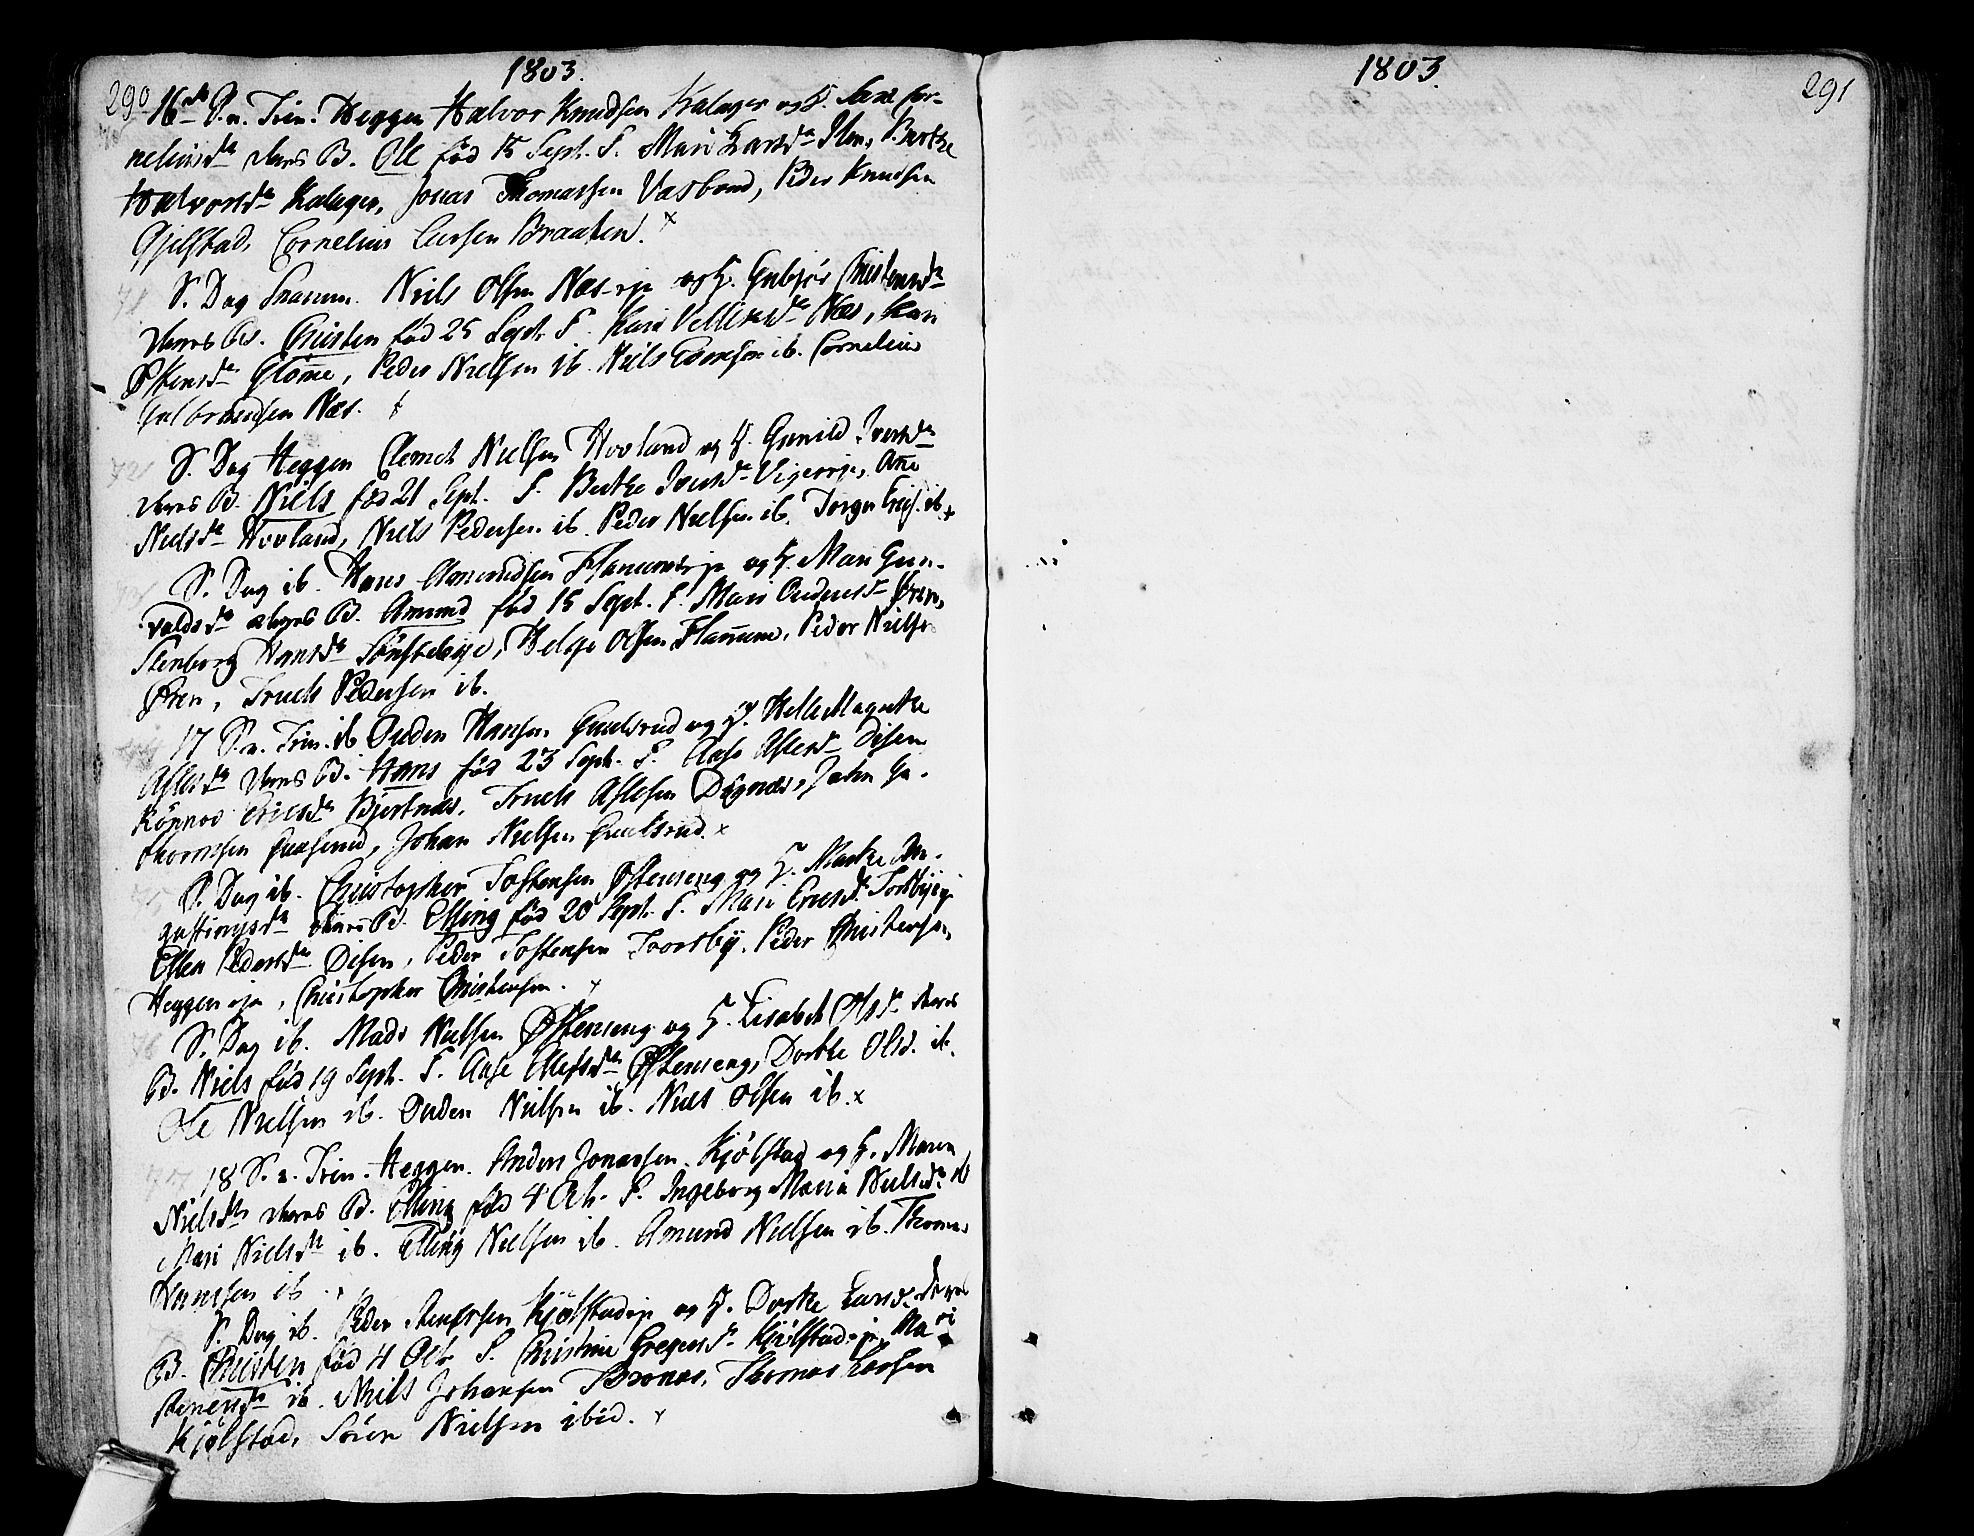 290
1803.
16de S. n. Trin. Heggen Halvor Knudsen Kalager og H. Cor-
neliusdr deres B. Ole fød 15 Sept. F. Mari Larsdr Berthe
Halvorsdr Kalager, Jonas Thomassen Vasbond, Peder Knudsen
Gjelstad, Cornelius Larsen Braaten. x
S. Dag Snarum. Niels Olsen Næs-eje og H. Gubjør Christensdr
deres B. Christen fød 25 Sept. F. Kari Næs, Kari
Stensdr Glomme, Peder Nielsen ib. Niels ib. Cornelius
Gulbrandsen Næs.
S. Dag Heggen Clemet Nielsen Hovland og H. Gunild Iversdr
deres B. Niels fød 21 Sept. F. Berthe Iversdr Ane
Nielsdr Hovland, Niels Pedersen ib. Peder Nielsen ib. Torger ib. x
S. Dag ib. Hans Amundsen og H. Mari Gun-
valdsdr deres B. Amund fød 15 Sept. F. Mari Øren,
Stenborg Hansdr Sønstebye, Helge Olsen Peder Nielsen
Øren, Truels Pedersen ib.
17 S. n. Trin. ib Ouden Hansen Gaulsrud og H. Helle Magrethe
Aslesdr deres B. Hans fød 23 Sept. F. Aase Aslesdr Disen
Rønnov Ericsdr Bjertnæs, Truels Aslesen Digenæs, John Gu-
thormsen Johan Nielsen Gaulsrud. x
S. Dag ib. Christopher Tostensen Østenseng og H. Marthe Au-
gustinusdr deres B. Elling fød 20 Sept. F. Mari Ericsdr
Ellen Pedersdr Disen, Peder Tostensen Toorsby, Peder Christensen
Heggen eje, Christopher Christensen. x
S. Dag ib. Mads Nielsen Østenseng og H. Lisabet Olsdr deres
B. Niels fød 19 Sept. F. Aase Ellefsdr Østenseng, Dorthe Olsd. ib.
Ole Nielsen ib. Ouden Nielsen ib. Niels Olsen ib. x
18 S. n. Trin. Heggen. Anders Jonassen Kjølstad og H. Maren
Nielsdr deres B. Elling fød 4 Oct. F. Ingeborg Maria Nielsdr ib
Mari Nielsdr ib. Elling Nielsen ib. Amund Nielsen ib. Thomas
Hansen ib.
S. Dag ib. Peder Kjølstadeje og H. Dorthe Larsd. deres
B. Christen fød 4 Octr F. Christine Gregersdr Kjølstadeje, Mari
ib. Niels Johansen Thomas Larsen
Kjølstad, Søren Nielsen ibid. x
1803.
291